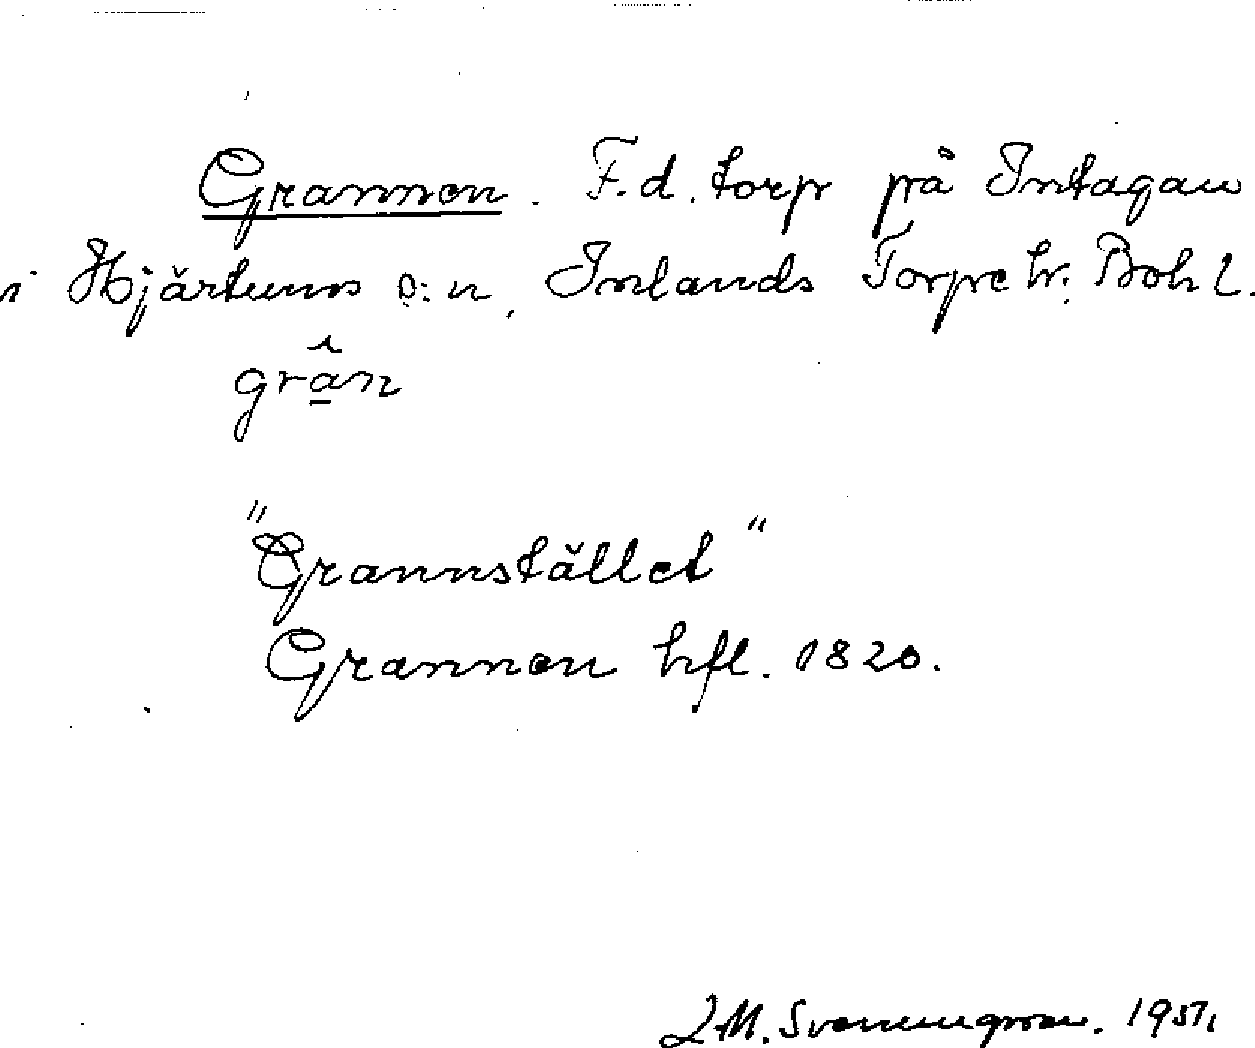 Grannen. F.d. torp på Intagan
i Hjärtums s:n, Inlands Torpe hr. Bohl.
grân
"Grannstället"
Grannen hfl. 1820.
J.M. Svenungsson. 1957.